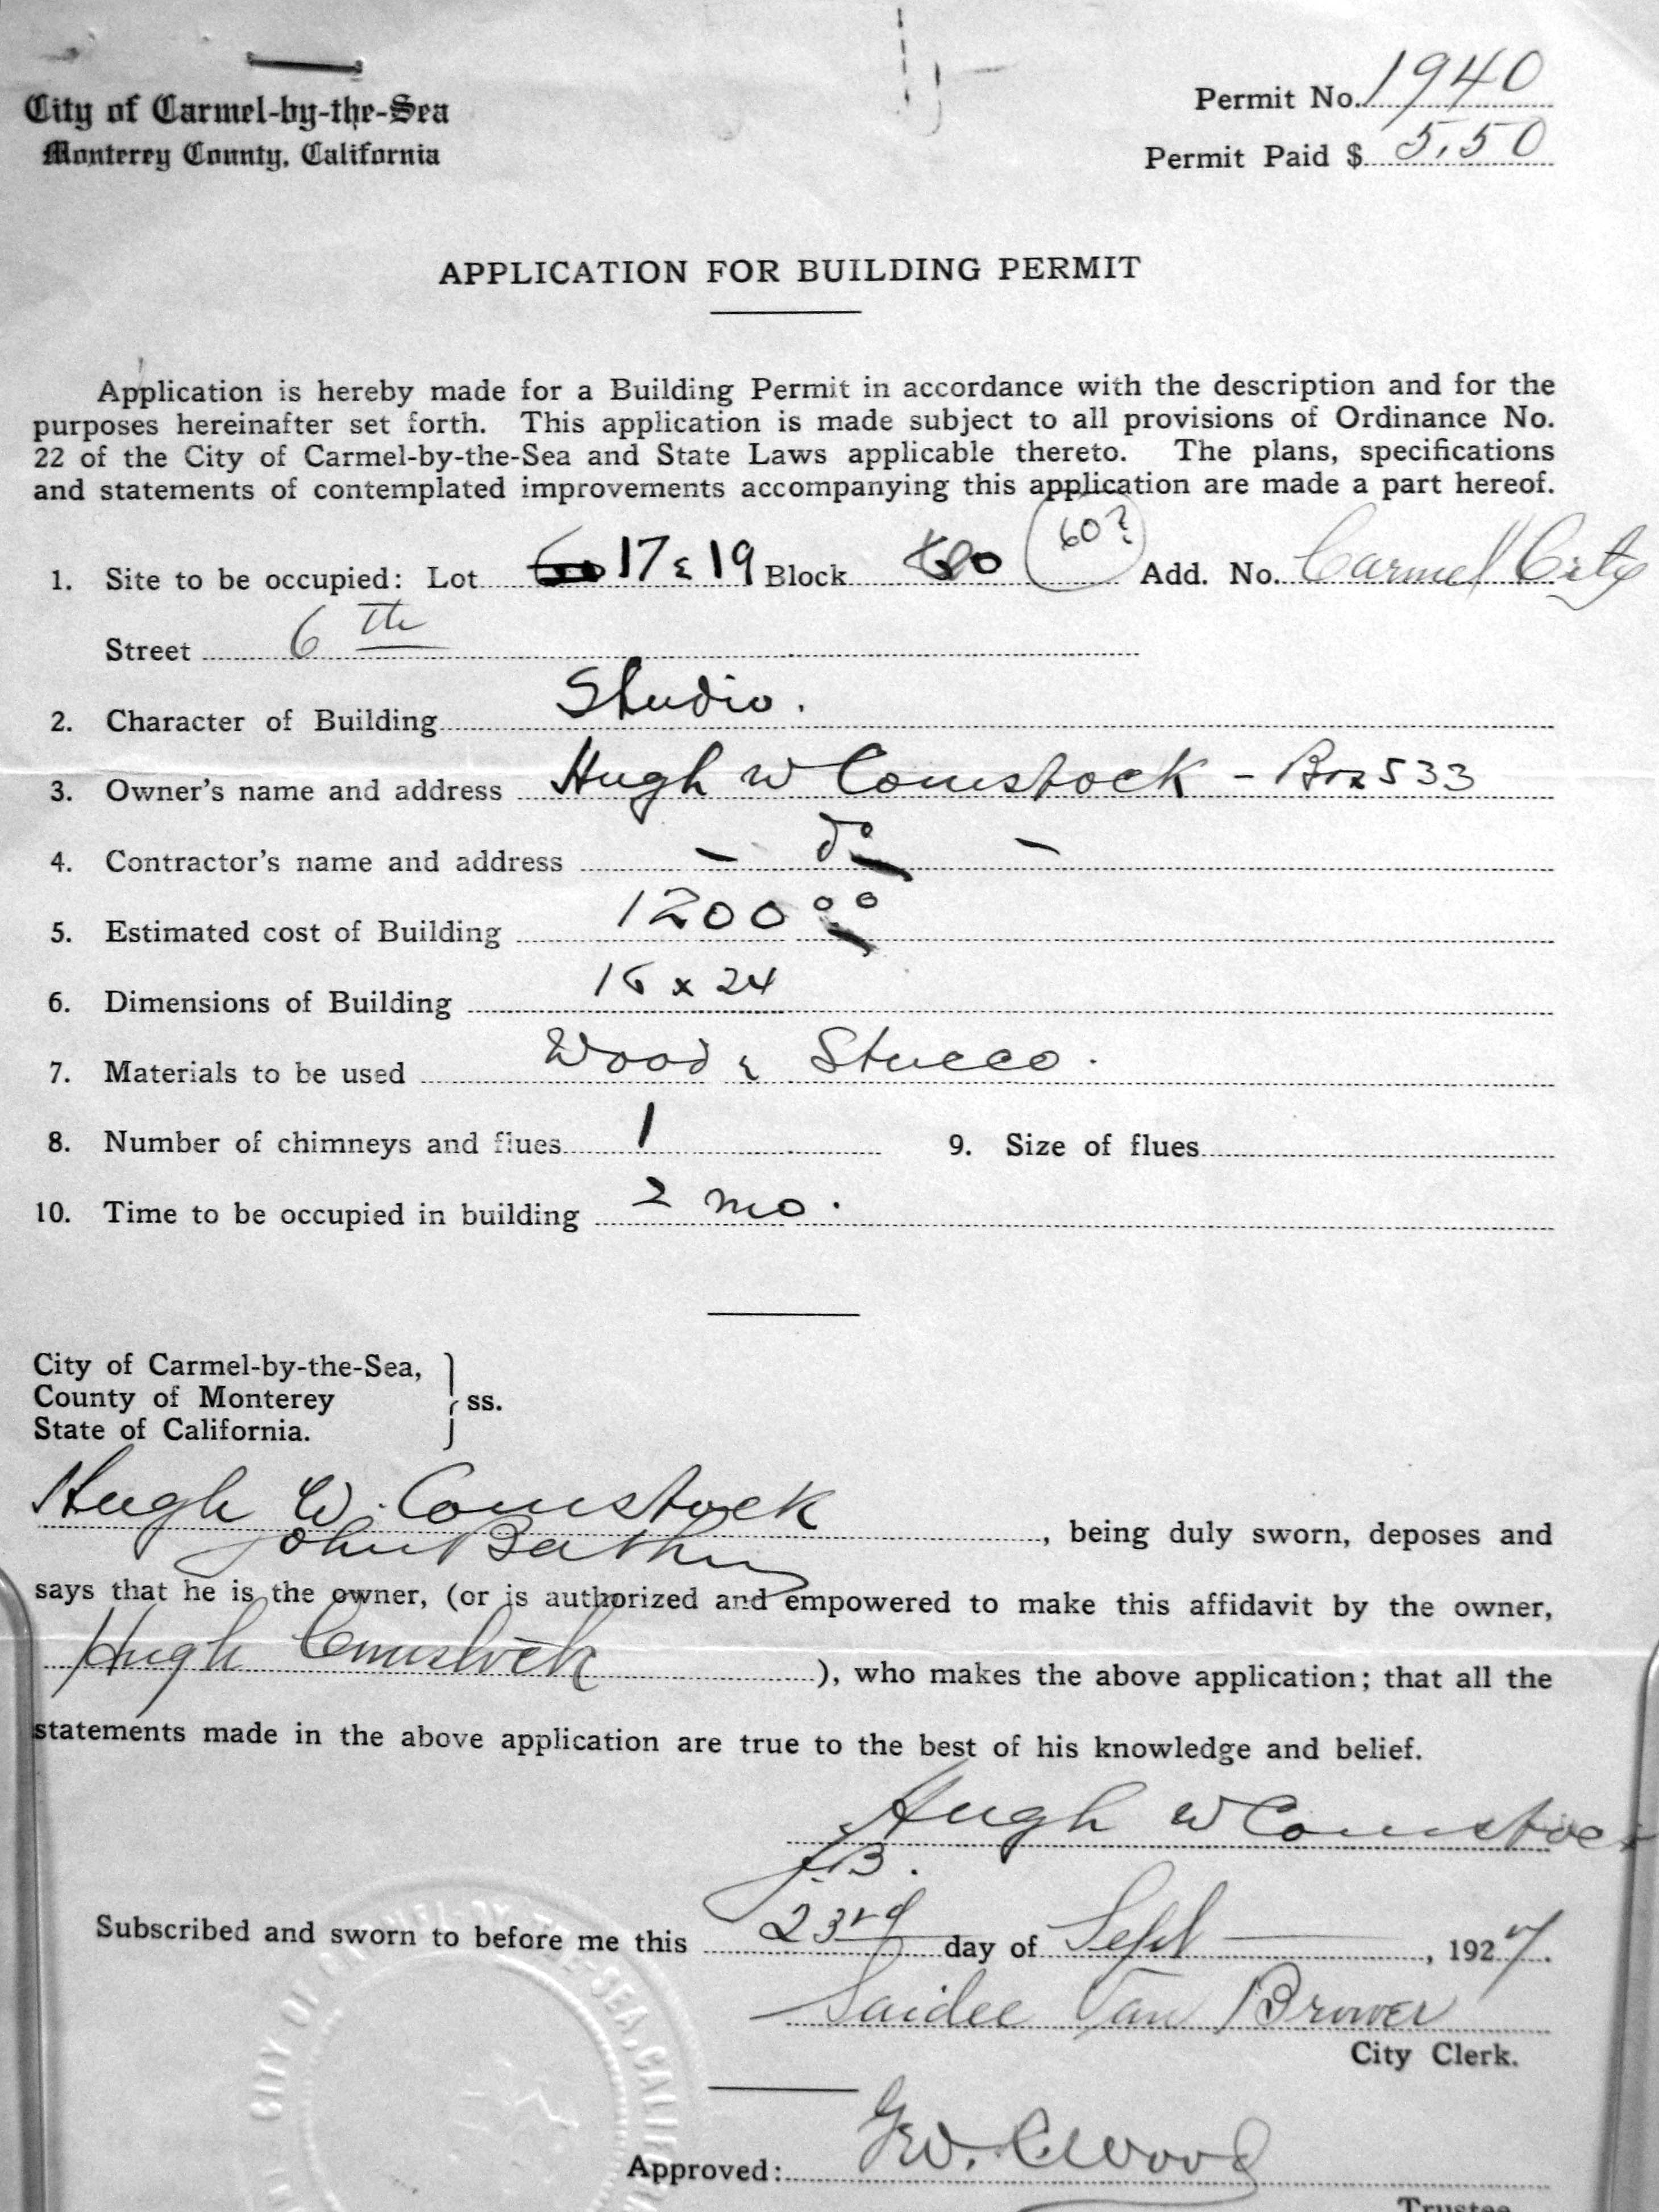 City of Carmel-by-the-Sea
Monterey County, California
Permit No. 1940
Permit Paid $ 5.50
APPLICATION FOR BUILDING PERMIT
Application is hereby made for a Building Permit in accordance with the description and for the
purposes hereinafter set forth. This application is made subject to all provisions of Ordinance No.
22 of the City of Carmel-by-the-Sea and State Laws applicable thereto. The plans, specifications
and statements of contemplated improvements accompanying this application are made a part hereof.
1. Site to be occupied: Lot 17 & 19 Block 60? Add. No. Carmel City
Street 6th
2. Character of Building Studio.
3. Owner's name and address Hugh W Comstock - Box 533
4. Contractor's name and address - do -
5. Estimated cost of Building 1200 00
6. Dimensions of Building 16 x 24
7. Materials to be used Wood & Stucco.
8. Number of chimneys and flues 1 9. Size of flues
10. Time to be occupied in building 2 mo.
City of Carmel-by-the-Sea,
County of Monterey } ss.
State of California.
Hugh W. Comstock , being duly sworn, deposes and
John
says that he is the owner, (or is authorized and empowered to make this affidavit by the owner,
Hugh Comstock ), who makes the above application; that all the
statements made in the above application are true to the best of his knowledge and belief.
Hugh W Comstock
J.B.
Subscribed and sworn to before me this 23rd day of Sept , 1927.
Saidee Van Brower
City Clerk.
CITY OF CARMEL-BY-THE-SEA, CALIFORNIA
Approved: Geo. Wood
Trustee